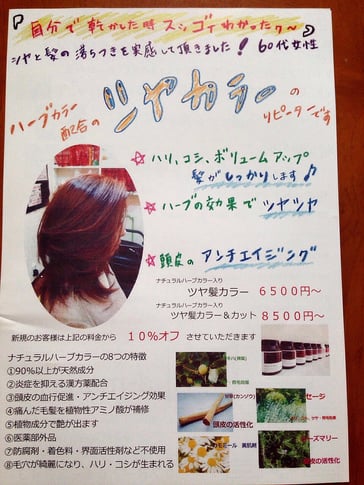 自分で乾かした時スンゴイわかったァ〜
ツヤと髪の落ちつきを実感して頂きました！ 60代女性
ハーブカラー
配合の
ツヤカラーの
リピーターです
☆ハリ、コシ、ボリュームアップ
髪がしっかりします♪
☆ハーブの効果でツヤツヤ
☆頭皮のアンチエイジング
ナチュラルハーブカラー入り
ツヤ髪カラー 6500円～
ナチュラルハーブカラー入り
ツヤ髪カラー＆カット 8500円～
新規のお客様は上記の料金から 10％オフ させていただきます
ナチュラルハーブカラーの8つの特徴
①90％以上が天然成分
②炎症を抑える漢方薬配合
③頭皮の血行促進・アンチエイジング効果
④痛んだ毛髪を植物性アミノ酸が補修
⑤植物成分で艶が出ます
⑥医薬部外品
⑦防腐剤・着色料・界面活性剤など不使用
⑧毛穴が綺麗になり、ハリ・コシが生まれる
甘草(カンゾウ)
頭皮の活性化
セージ
ツヤ・育毛効果
ローズマリー
頭皮の活性化
カモミール 美肌剤